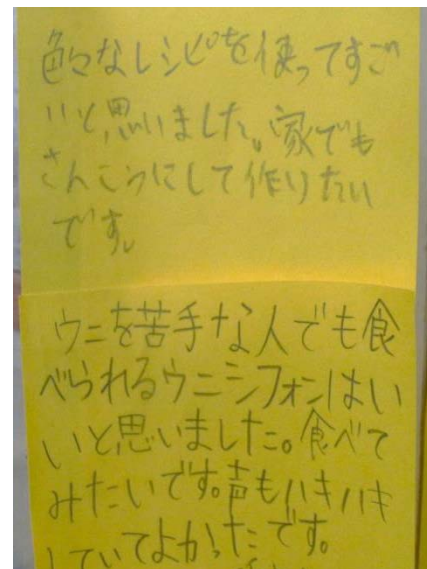 色々なレシピを使ってすご
いと思いました。家でも
さんこうにして作りたい
です。
ウニを苦手な人でも食
べられるウニシフォンはい
いと思いました。食べて
みたいです。声もハキハキ
していてよかったです。